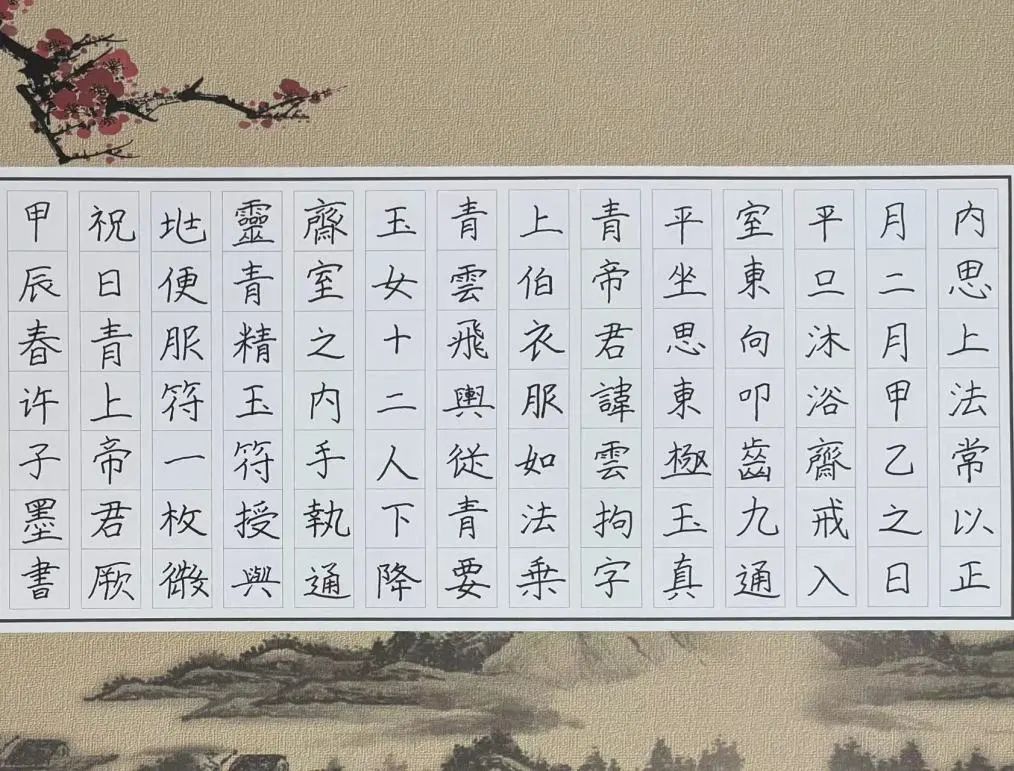 内思上法常以正
月二月甲乙之日
平旦沐浴齋戒入
室東向叩齒九通
平坐思東極玉真
青帝君諱雲拘字
上伯衣服如法乗
青雲飛輿從青要
玉女十二人下降
齋室之内手執通
靈青精玉符授與
地便服符一枚微
祝日青上帝君厥
甲辰春许子墨書